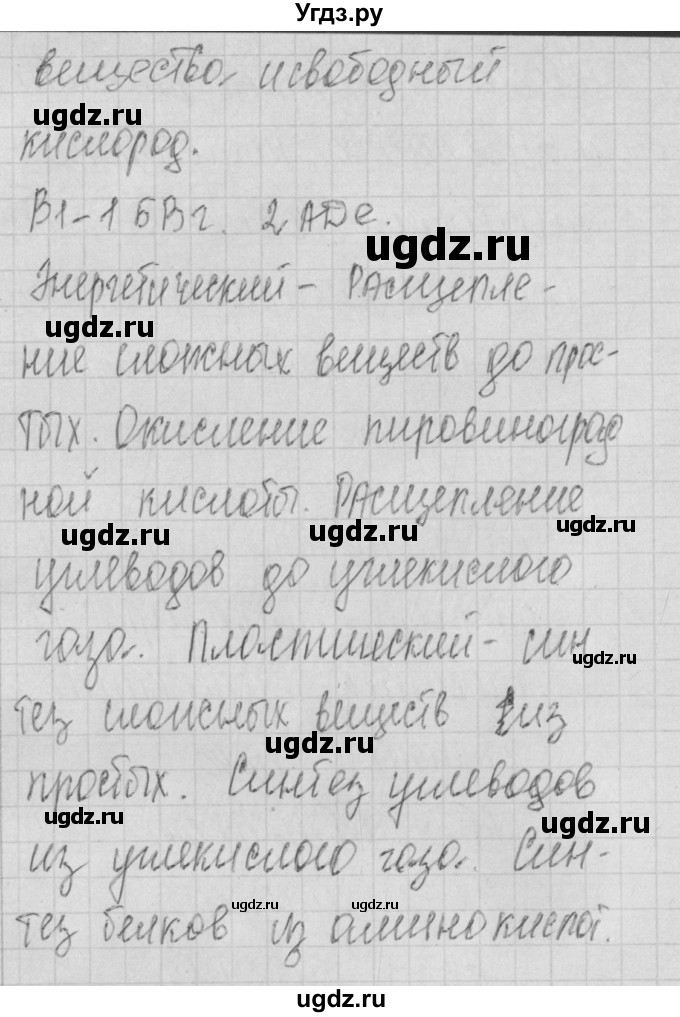 Угдз.ру
вещества и свободный
кислород.
В1-1 БВг. 2 АDe.
Энергетический - Расщепле-
ние сложных веществ до прос-
тых. Окисление пировиноград
ной кислоты. Расщепление
углеводов до углекислого
газа. Пластический - син
тез сложных веществ из
простых. Синтез углеводов
из углекислого газа. Син-
тез белков из аминокислот.
ugdz.ru
ugdz.ru
ugdz.ru
ugdz.ru
ugdz.ru
ugdz.ru
ugdz.ru
ugdz.ru
ugdz.ru
ugdz.ru
ugdz.ru
ugdz.ru
ugdz.ru
ugdz.ru